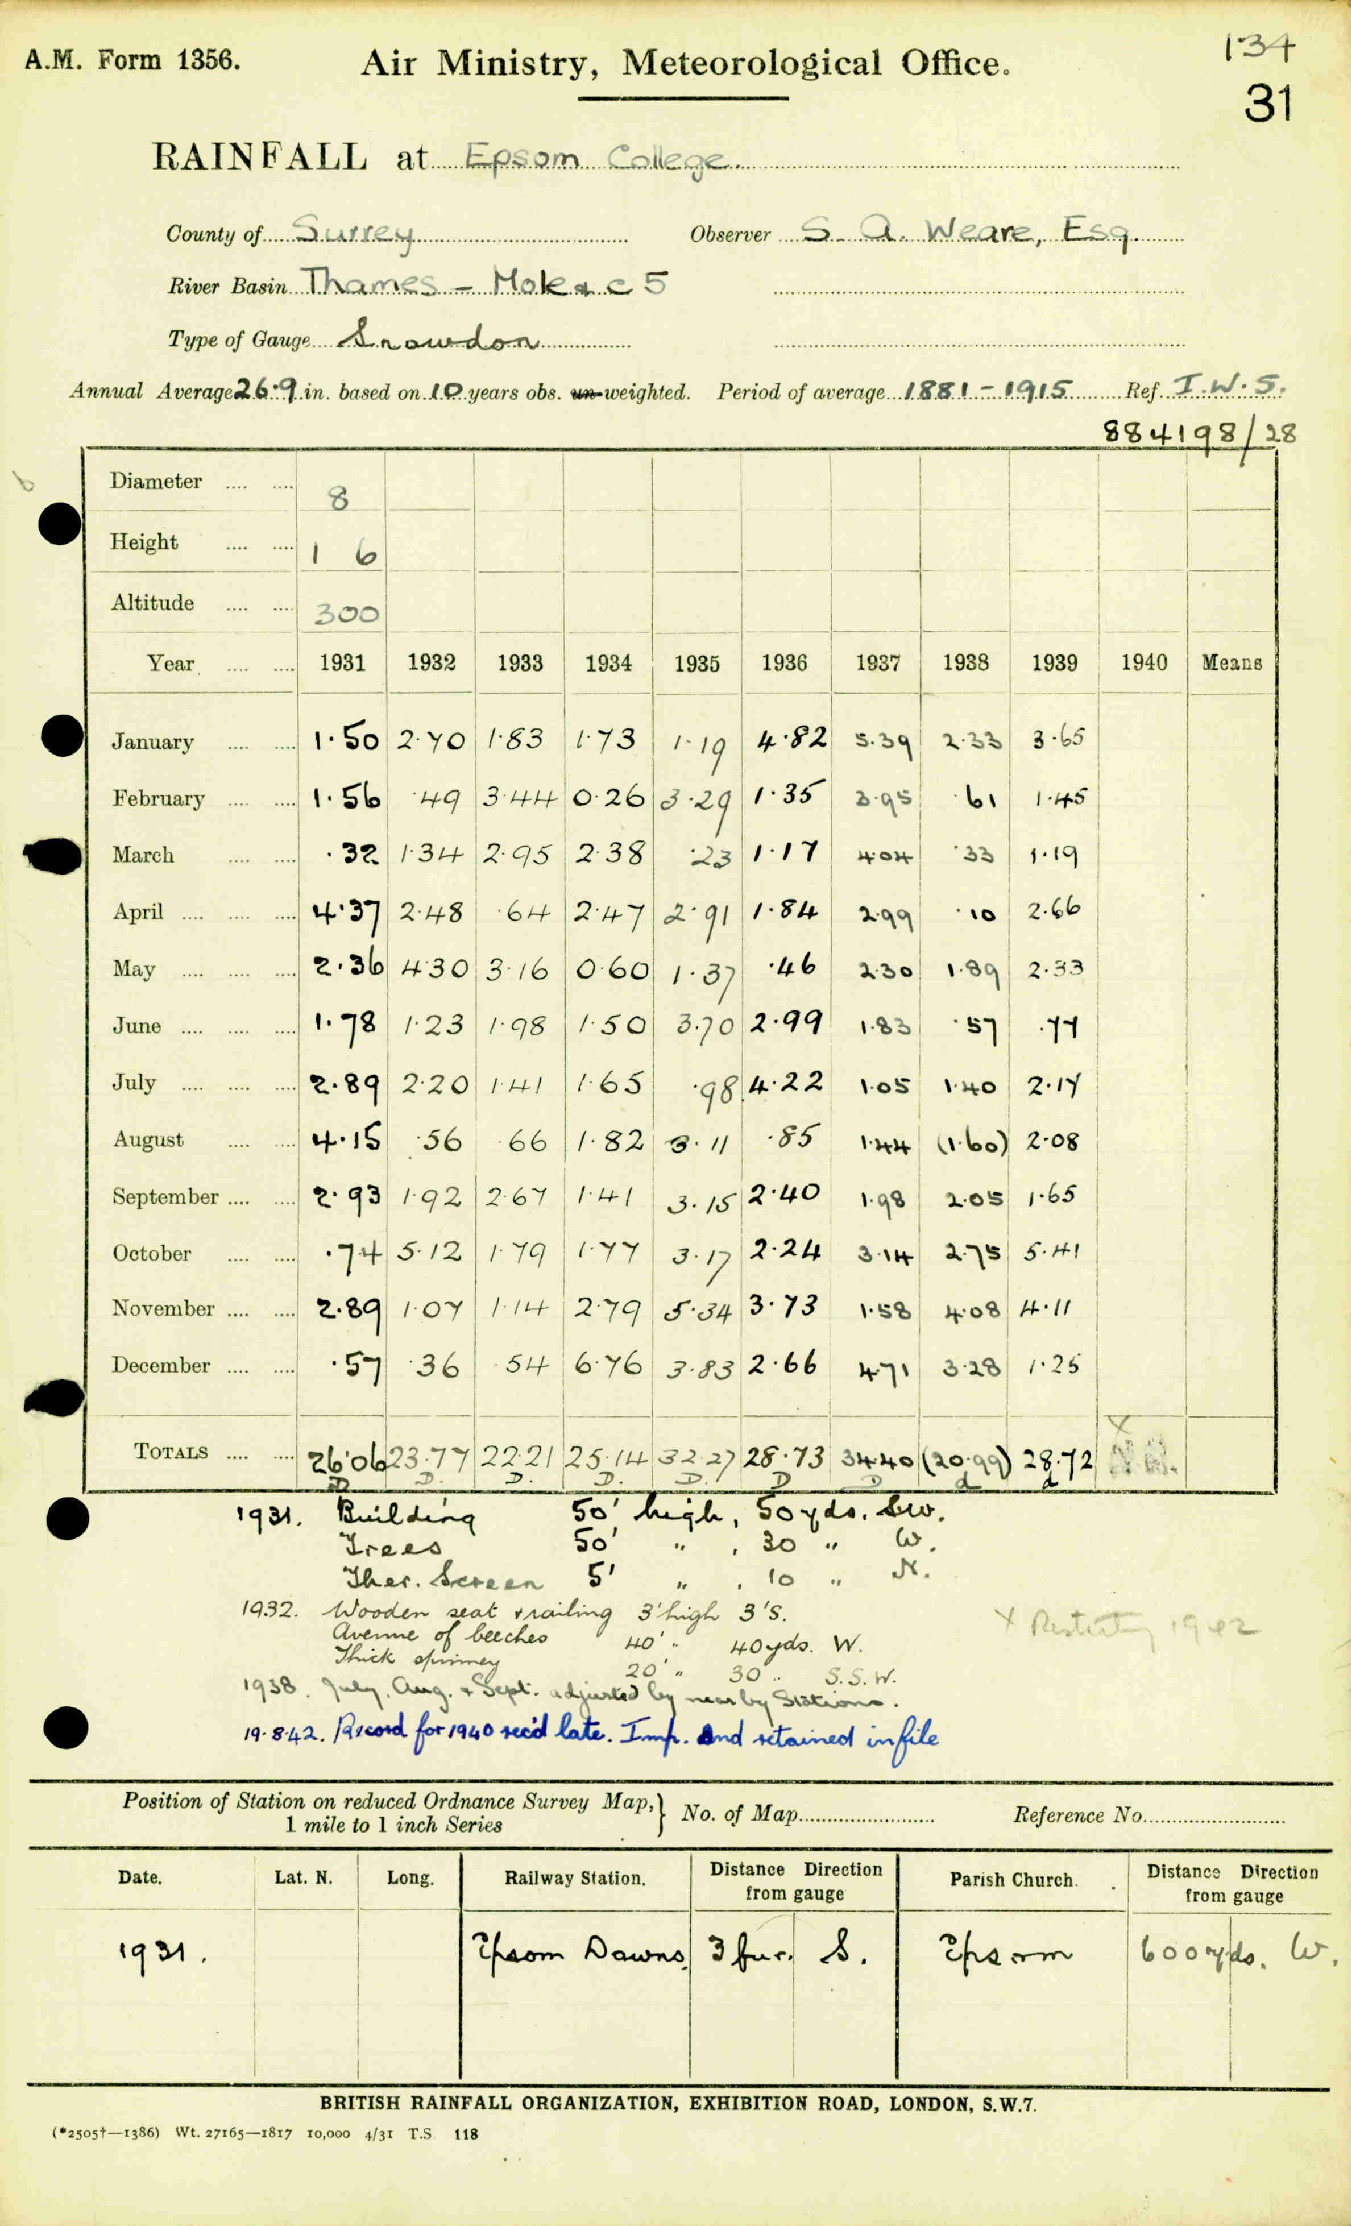 A.M. Form 1356.
Air Ministry, Meteorological Office.
134
31
RAINFALL at Epsom College.
County of Surrey Observer S. A. Weare, Esq.
River Basin Thames – Mole & c 5
Type of Gauge Snowdon
Annual Average 26·9 in. based on 10 years obs. un-weighted. Period of average 1881–1915 Ref. I.W.S.
884198/28
Diameter .... .... 8
Height .... .... 1 6
Altitude .... .... 300
Year .... .... 1931 1932 1933 1934 1935 1936 1937 1938 1939 1940 Means
January .... .... 1·50 2·70 1·83 1·73 1·19 4·82 5·39 2·33 3·65
February .... .... 1·56 ·49 3·44 0·26 3·29 1·35 3·95 ·61 1·45
March .... .... ·32 1·34 2·95 2·38 ·23 1·17 4·04 ·33 1·19
April .... .... .... 4·37 2·48 ·64 2·47 2·91 1·84 2·99 ·10 2·66
May .... .... .... 2·36 4·30 3·16 0·60 1·37 ·46 2·30 1·89 2·33
June .... .... .... 1·78 1·23 1·98 1·50 3·70 2·99 1·83 ·57 ·77
July .... .... .... 2·89 2·20 1·41 1·65 ·98 4·22 1·05 1·40 2·17
August .... .... 4·15 ·56 ·66 1·82 3·11 ·85 1·44 (1·60) 2·08
September .... .... 2·93 1·92 2·67 1·41 3·15 2·40 1·98 2·05 1·65
October .... .... ·74 5·12 1·79 1·77 3·17 2·24 3·14 2·75 5·41
November .... .... 2·89 1·07 1·14 2·79 5·34 3·73 1·58 4·08 4·11
December .... .... ·57 ·36 ·54 6·76 3·83 2·66 4·71 3·28 1·25
X
TOTALS .... .... 26·06 23·77 22·21 25·14 32·27 28·73 34·40 (20·99) 28·72
D D. D. D. D. D D d d
1931. Building 50' high, 50 yds. SW.
Trees 50' " , 30 " W.
Ther. Screen 5' " , 10 " N.
1932. Wooden seat & railing 3' high 3' S.
Avenue of beeches 40' " 40 yds. W.
Thick spinney 20' " 30 " S.S.W.
X 1942
1938. July, Aug. & Sept. adjusted by near by Stations.
19·8·42. Record for 1940 rec'd late. Imp. and retained in file
Position of Station on reduced Ordnance Survey Map,} No. of Map Reference No.
1 mile to 1 inch Series
Date. Lat. N. Long. Railway Station. Distance Direction from gauge Parish Church. Distance Direction from gauge
1931. Epsom Downs. 3 fur. S. Epsom 600 yds. W.
BRITISH RAINFALL ORGANIZATION, EXHIBITION ROAD, LONDON, S.W.7.
(*2505†—1386) Wt. 27165—1817 10,000 4/31 T.S. 118